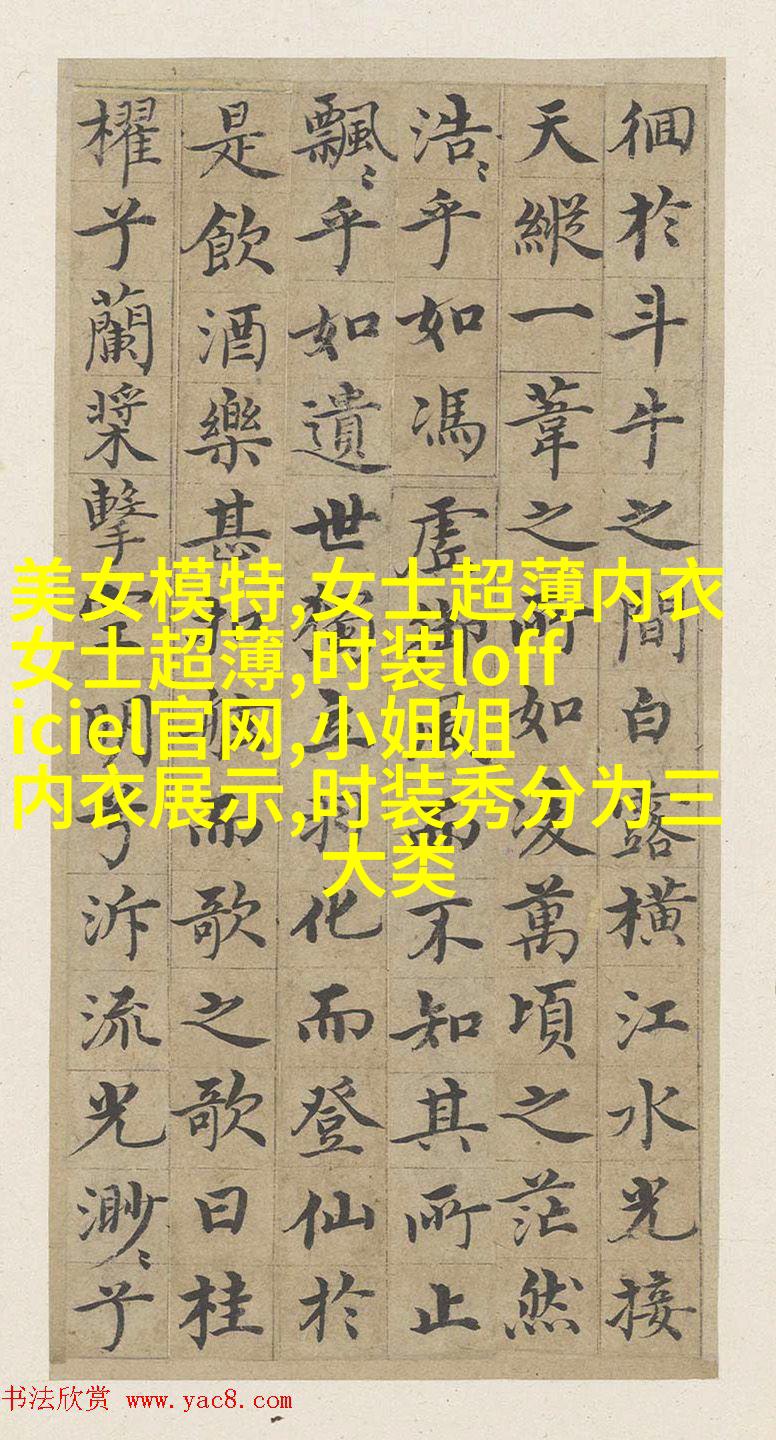 徊於斗牛之間白露橫江水光接
天縱一葦之所如凌萬頃之茫然
浩〻乎如馮虛御風而不知其所止
飄〻乎如遺世獨立羽化而登仙於
是飲酒樂甚而歌之歌曰桂
櫂兮蘭槳擊空明兮泝流光渺〻兮
美女模特,女士超薄内衣
女士超薄,时装loff
iciel官网,小姐姐
内衣展示,时装秀分为三
大类
书法欣赏 www.yac8.com